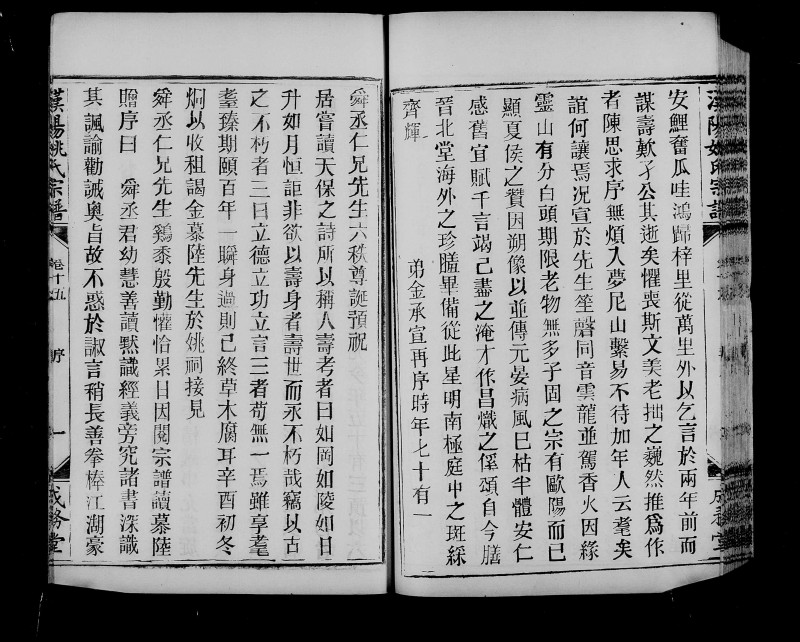 安鯉奮瓜哇鴻歸梓里從萬里外以乞言於兩年前而
謀壽歎矛公其逝矣懼喪斯文美老拙之巍然推爲作
者陳思求序無煩入夢尼山繫易不待加年人云耄矣
誼何讓焉况宣於先生笙磬同音雲龍並駕香火因緣
靈山有分白頭期限老物無多子固之宗有歐陽而已
顯夏侯之贊因朔像以並傳元晏病風巳枯半體安仁
感舊宜賦千言竭己盡之淹才作昌熾之俚頌自今膳
晉北堂海外之珍膳畢備從此星明南極庭中之斑綵
齊輝
弟金承宣再序時年七十有一
舜丞仁兄先生六秩尊誕預祝
居嘗讀天保之詩所以稱人壽考者曰如岡如陵如日
升如月恒詎非欲以壽身者壽世而永不朽哉竊以古
之不朽者三曰立德立功立言三者苟無一焉雖享耄
耋臻期頤百年一瞬身過則已終草木腐耳辛酉初冬
炯以收租謁金慕陸先生於姚祠接見
舜丞仁兄先生鷄黍殷勤懽怡累日因閱宗譜讀慕陸
贈序曰 舜丞君幼慧善讀默識經義旁究諸書深識
其諷諭勸誡奧旨故不惑於諔言稍長善拳棒江湖豪
漢陽姚氏宗譜
卷十五
序
一
成務堂